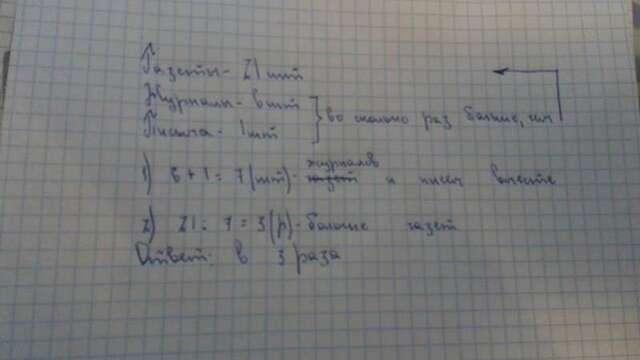 Газеты - 21 шт
Журналы - 6 шт
Письма - 1 шт } во сколько раз больше, чем
1) 6 + 1 = 7 (шт) - журналов и писем вместе
2) 21 : 7 = 3 (р) - больше газет
Ответ: в 3 раза